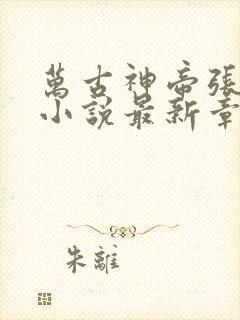 萬古神帝張
小說最新章
朱離